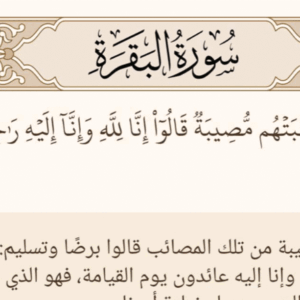 سُورَةُ البَقَرَةِ
مُّصِيبَةٌ قَالُوٓا۟ إِنَّا لِلَّهِ وَإِنَّآ إِلَيْهِ
من تلك المصائب قالوا برضًا وتسليم:
وإنا إليه عائدون يوم القيامة، فهو الذي